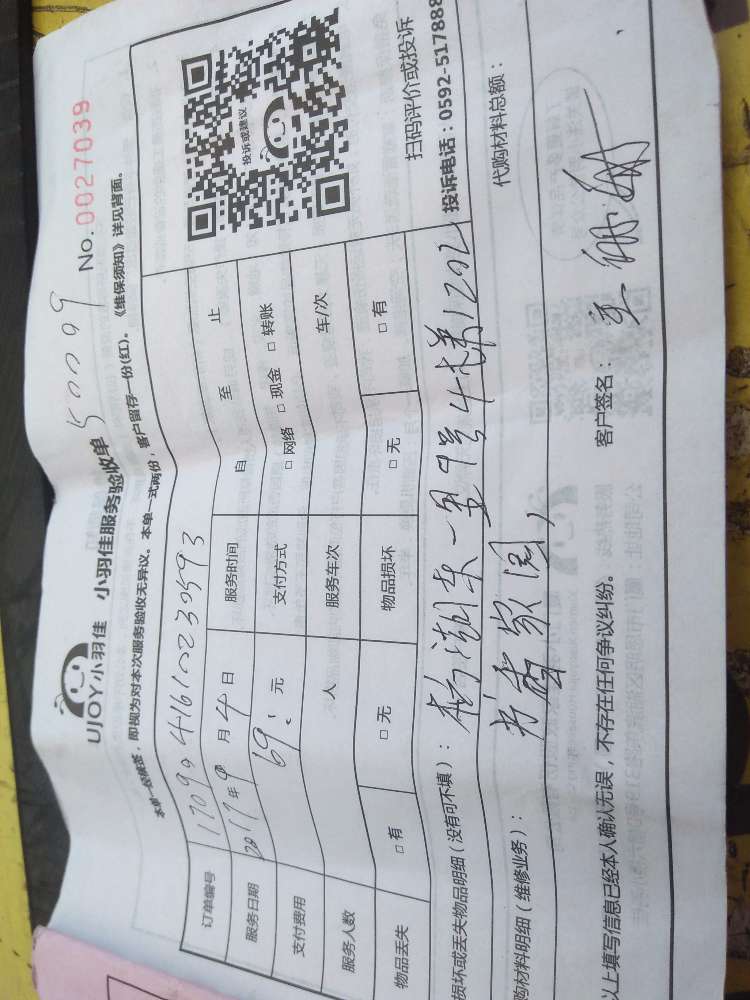 UJOY小羽佳 小羽佳服务验收单 50009 No.0027039
本单一经核签，即视为对本次服务验收无异议。本单一式两份，客户留存一份(红)。《维保须知》详见背面。
订单编号 1709041610230593
服务日期 2017年9月4日 服务时间 自 至 止
支付费用 69.元 支付方式 □网络 □现金 □转账
服务人数 人 服务车次 车/次
物品丢失 □有 □无 物品损坏 □无 □有
投诉或建议
扫码评价或投诉
投诉电话：0592-517888
损坏或丢失物品明细（没有可不填）： 杨湖东一里9号4梯1202
购材料明细（维修业务）： 书香家园， 代购材料总额：
以上填写信息已经本人确认无误，不存在任何争议纠纷。 客户签名：